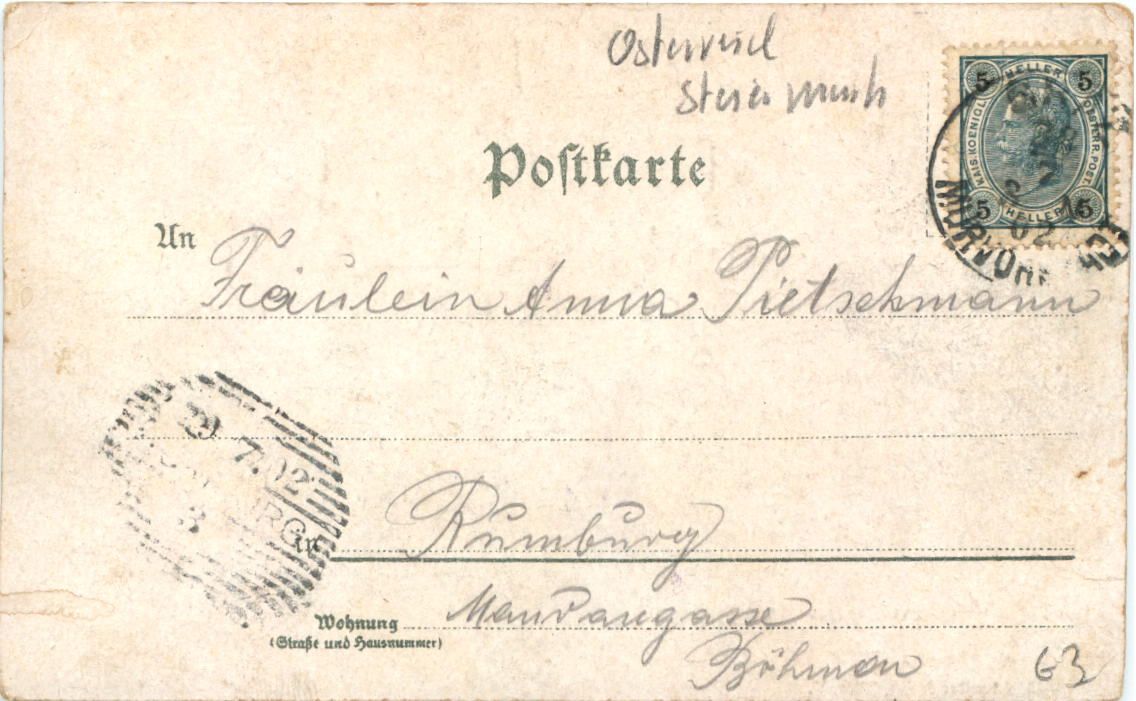 Osterreich
Steiermark
Postkarte
5 HELLER 5
KAIS. KOENIGL. OESTERR. POST.
5 HELLER 5
02
An
Fräulein Anna Pietschmann
7.02
3
in Rumburg
Wohnung
(Straße und Hausnummer)
Mandaugasse
Böhmen
63